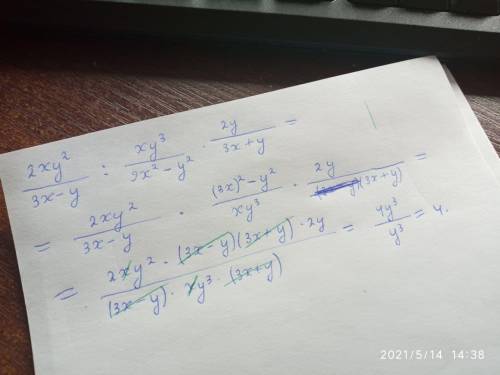 2xy²/(3x-y) : xy³/(9x²-y²) · 2y/(3x+y) =
= 2xy²/(3x-y) · ((3x)²-y²)/xy³ · 2y/(3x+y) =
= (2xy² · (3x-y)(3x+y) · 2y)/((3x-y) · xy³ · (3x+y)) = 4y³/y³ = 4.
2021/5/14 14:38